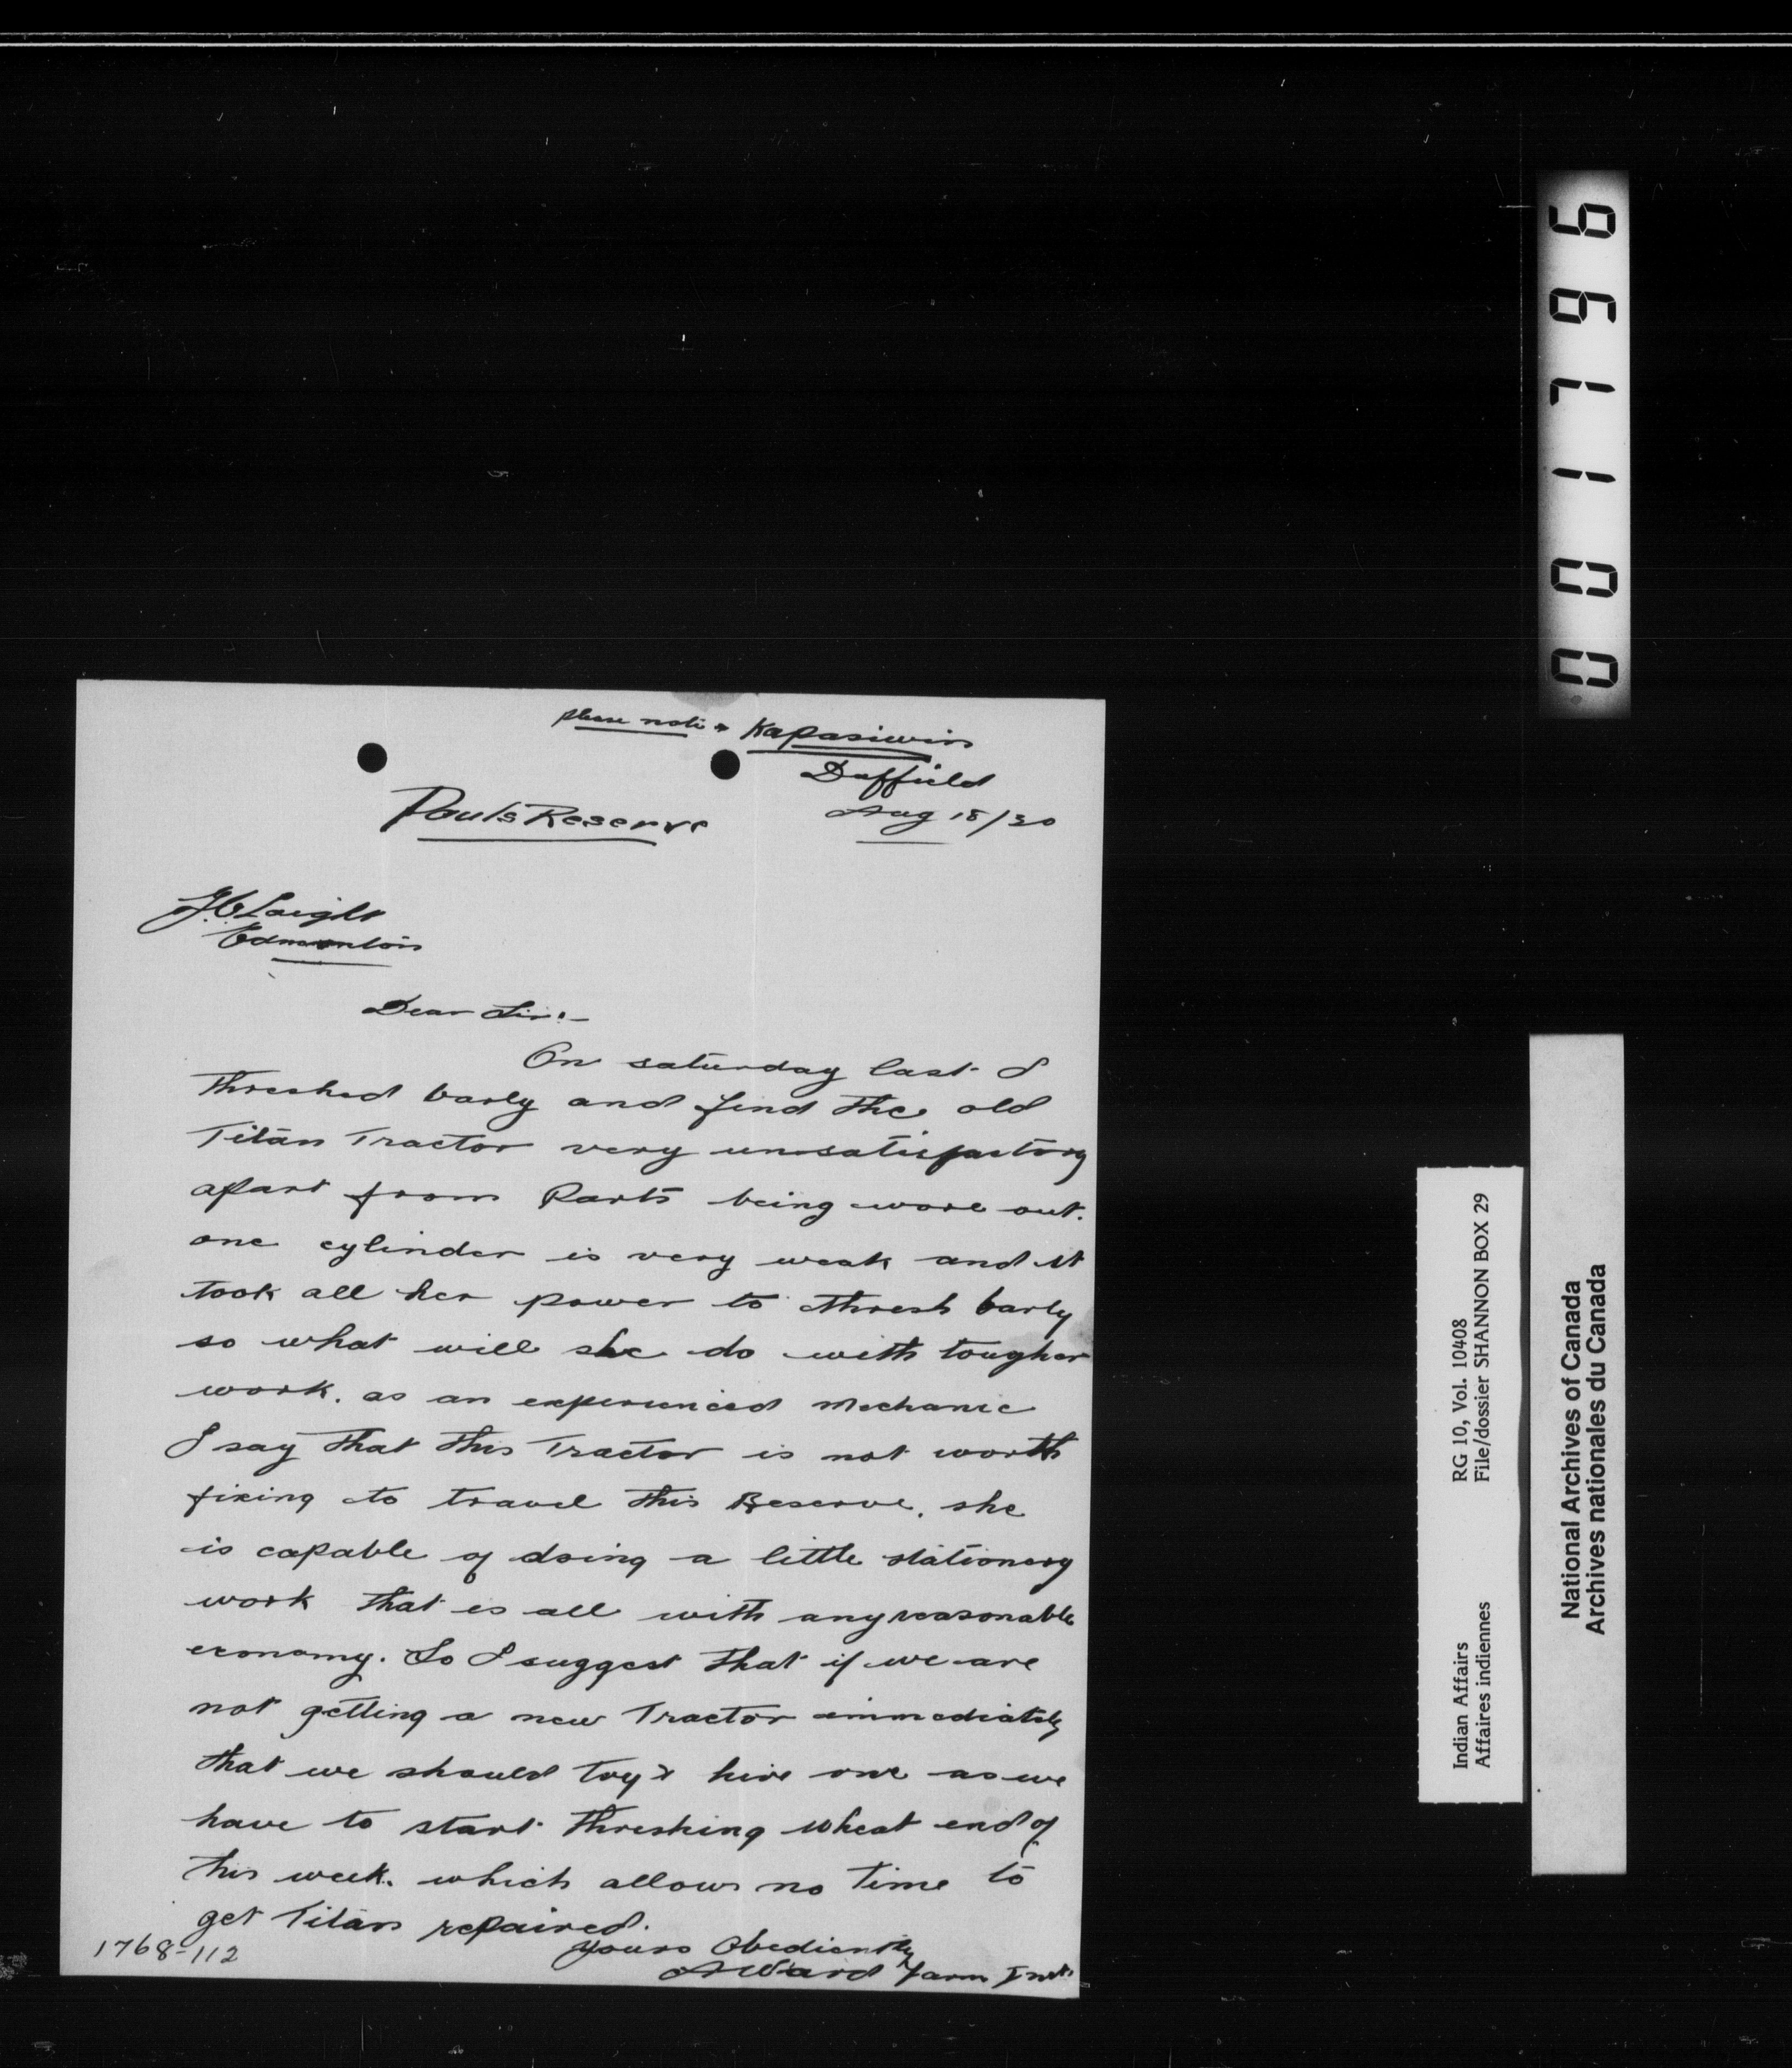 please note * Kapasiwin
Duffield
Aug 18/30
Pauls Reserve
Edmonton
Dear Sir:-
On saturday last I
threshed barly and find the old
Titan Tractor very unsatisfactory
apart from Parts being wore out.
one cylinder is very weak and it
took all her power to thresh barly
so what will she do with tougher
work. as an experienced mechanic
I say that this Tractor is not worth
fixing to travel this Reserve. she
is capable of doing a little stationery
work that is all with any reasonable
economy. So I suggest that if we are
not getting a new Tractor immediately
that we should try & hire one as we
have to start threshing wheat end of
this week. which allows no time to
get Titan repaired.
Yours Obediently
A Ward Farm Inst.
1768-112
001796
Indian Affairs RG 10, Vol. 10408
Affaires indiennes File/dossier SHANNON BOX 29
National Archives of Canada
Archives nationales du Canada